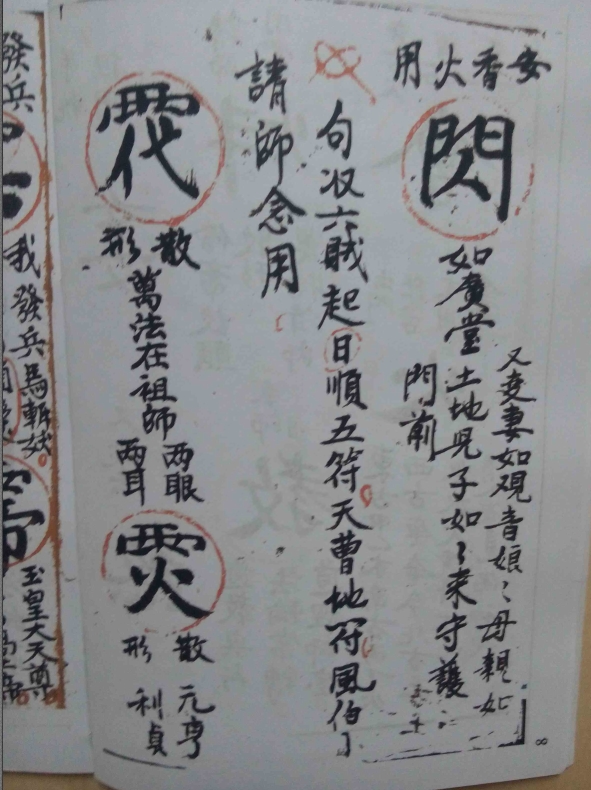 安香火用
閃
又妻妻如观音娘〻母親如
如廣堂土地兒子如〻來守護
門前
句収六賊起日順五符天曹地符風伯
請師念用
散形
萬法在祖師
两眼
两耳
火
散形
元亨
利貞
發兵
我發兵馬斬妖
玉皇大天尊